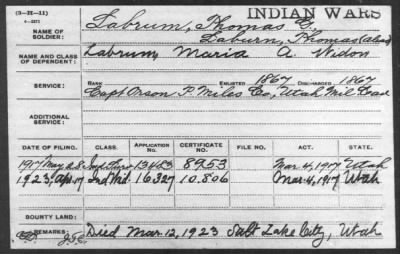 (3-H-11)
INDIAN WARS
NAME OF SOLDIER: Labrum, Thomas G
Laburn, Thomas (alias)
NAME AND CLASS OF DEPENDENT: Labrum, Maria A. Widow
SERVICE: RANK ENLISTED 1867 DISCHARGED 1867
Capt Orson P. Miles Co, Utah Mil Cav
ADDITIONAL SERVICE:
DATE OF FILING. CLASS. APPLICATION NO. CERTIFICATE NO. FILE NO. ACT. STATE.
1917 May 28 8953 Mar. 4, 1917 Utah
1923, Apr. 17 Ind Wid. 16927 10.806 Mar. 4, 1917 Utah
BOUNTY LAND:
REMARKS: Died Mar. 12, 1923 Salt Lake City, Utah